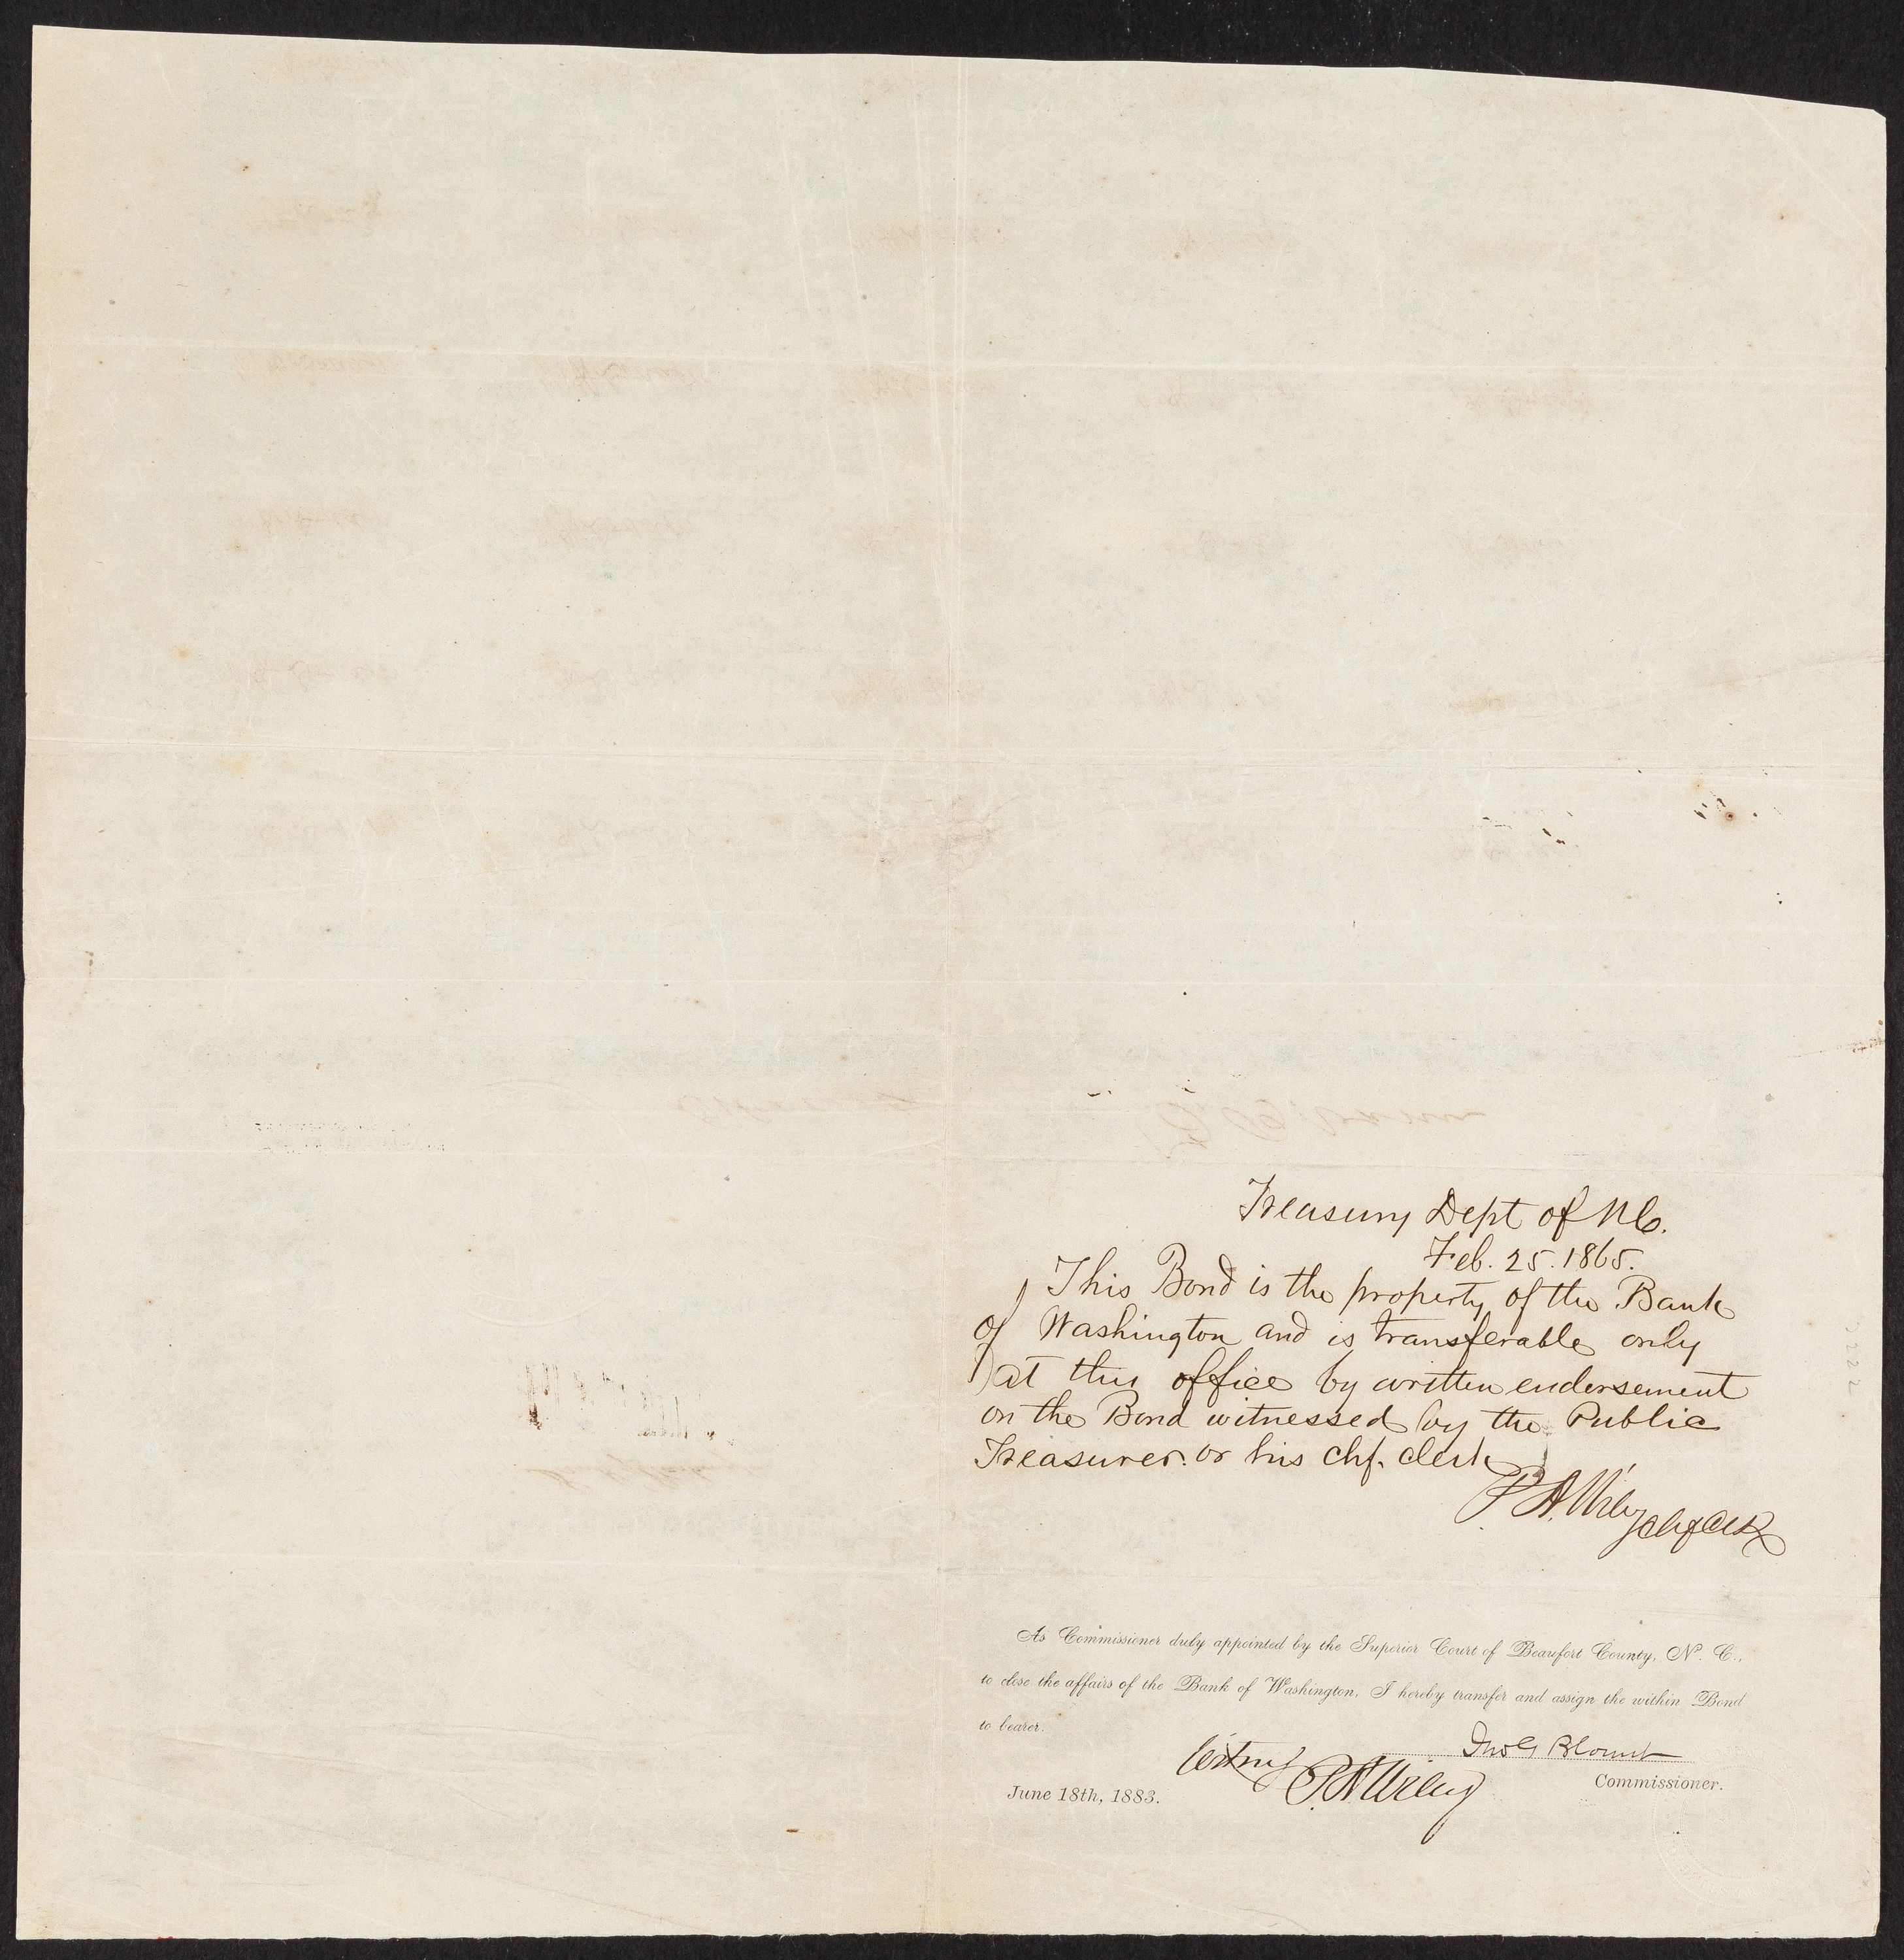 Treasury Dept of N C.
Feb. 25. 1865.
This Bond is the property of the Bank
of Washington and is transferable only
at this office by written endorsement
on the Bond witnessed by the Public
Treasurer or his chf. clerk
P. A. Wiley chf clk
As Commissioner duly appointed by the Superior Court of Beaufort County, N. C.,
to close the affairs of the Bank of Washington, I hereby transfer and assign the within Bond
to bearer.
Jno G Blount
Witness P. A. Wiley
Commissioner.
June 18th, 1883.